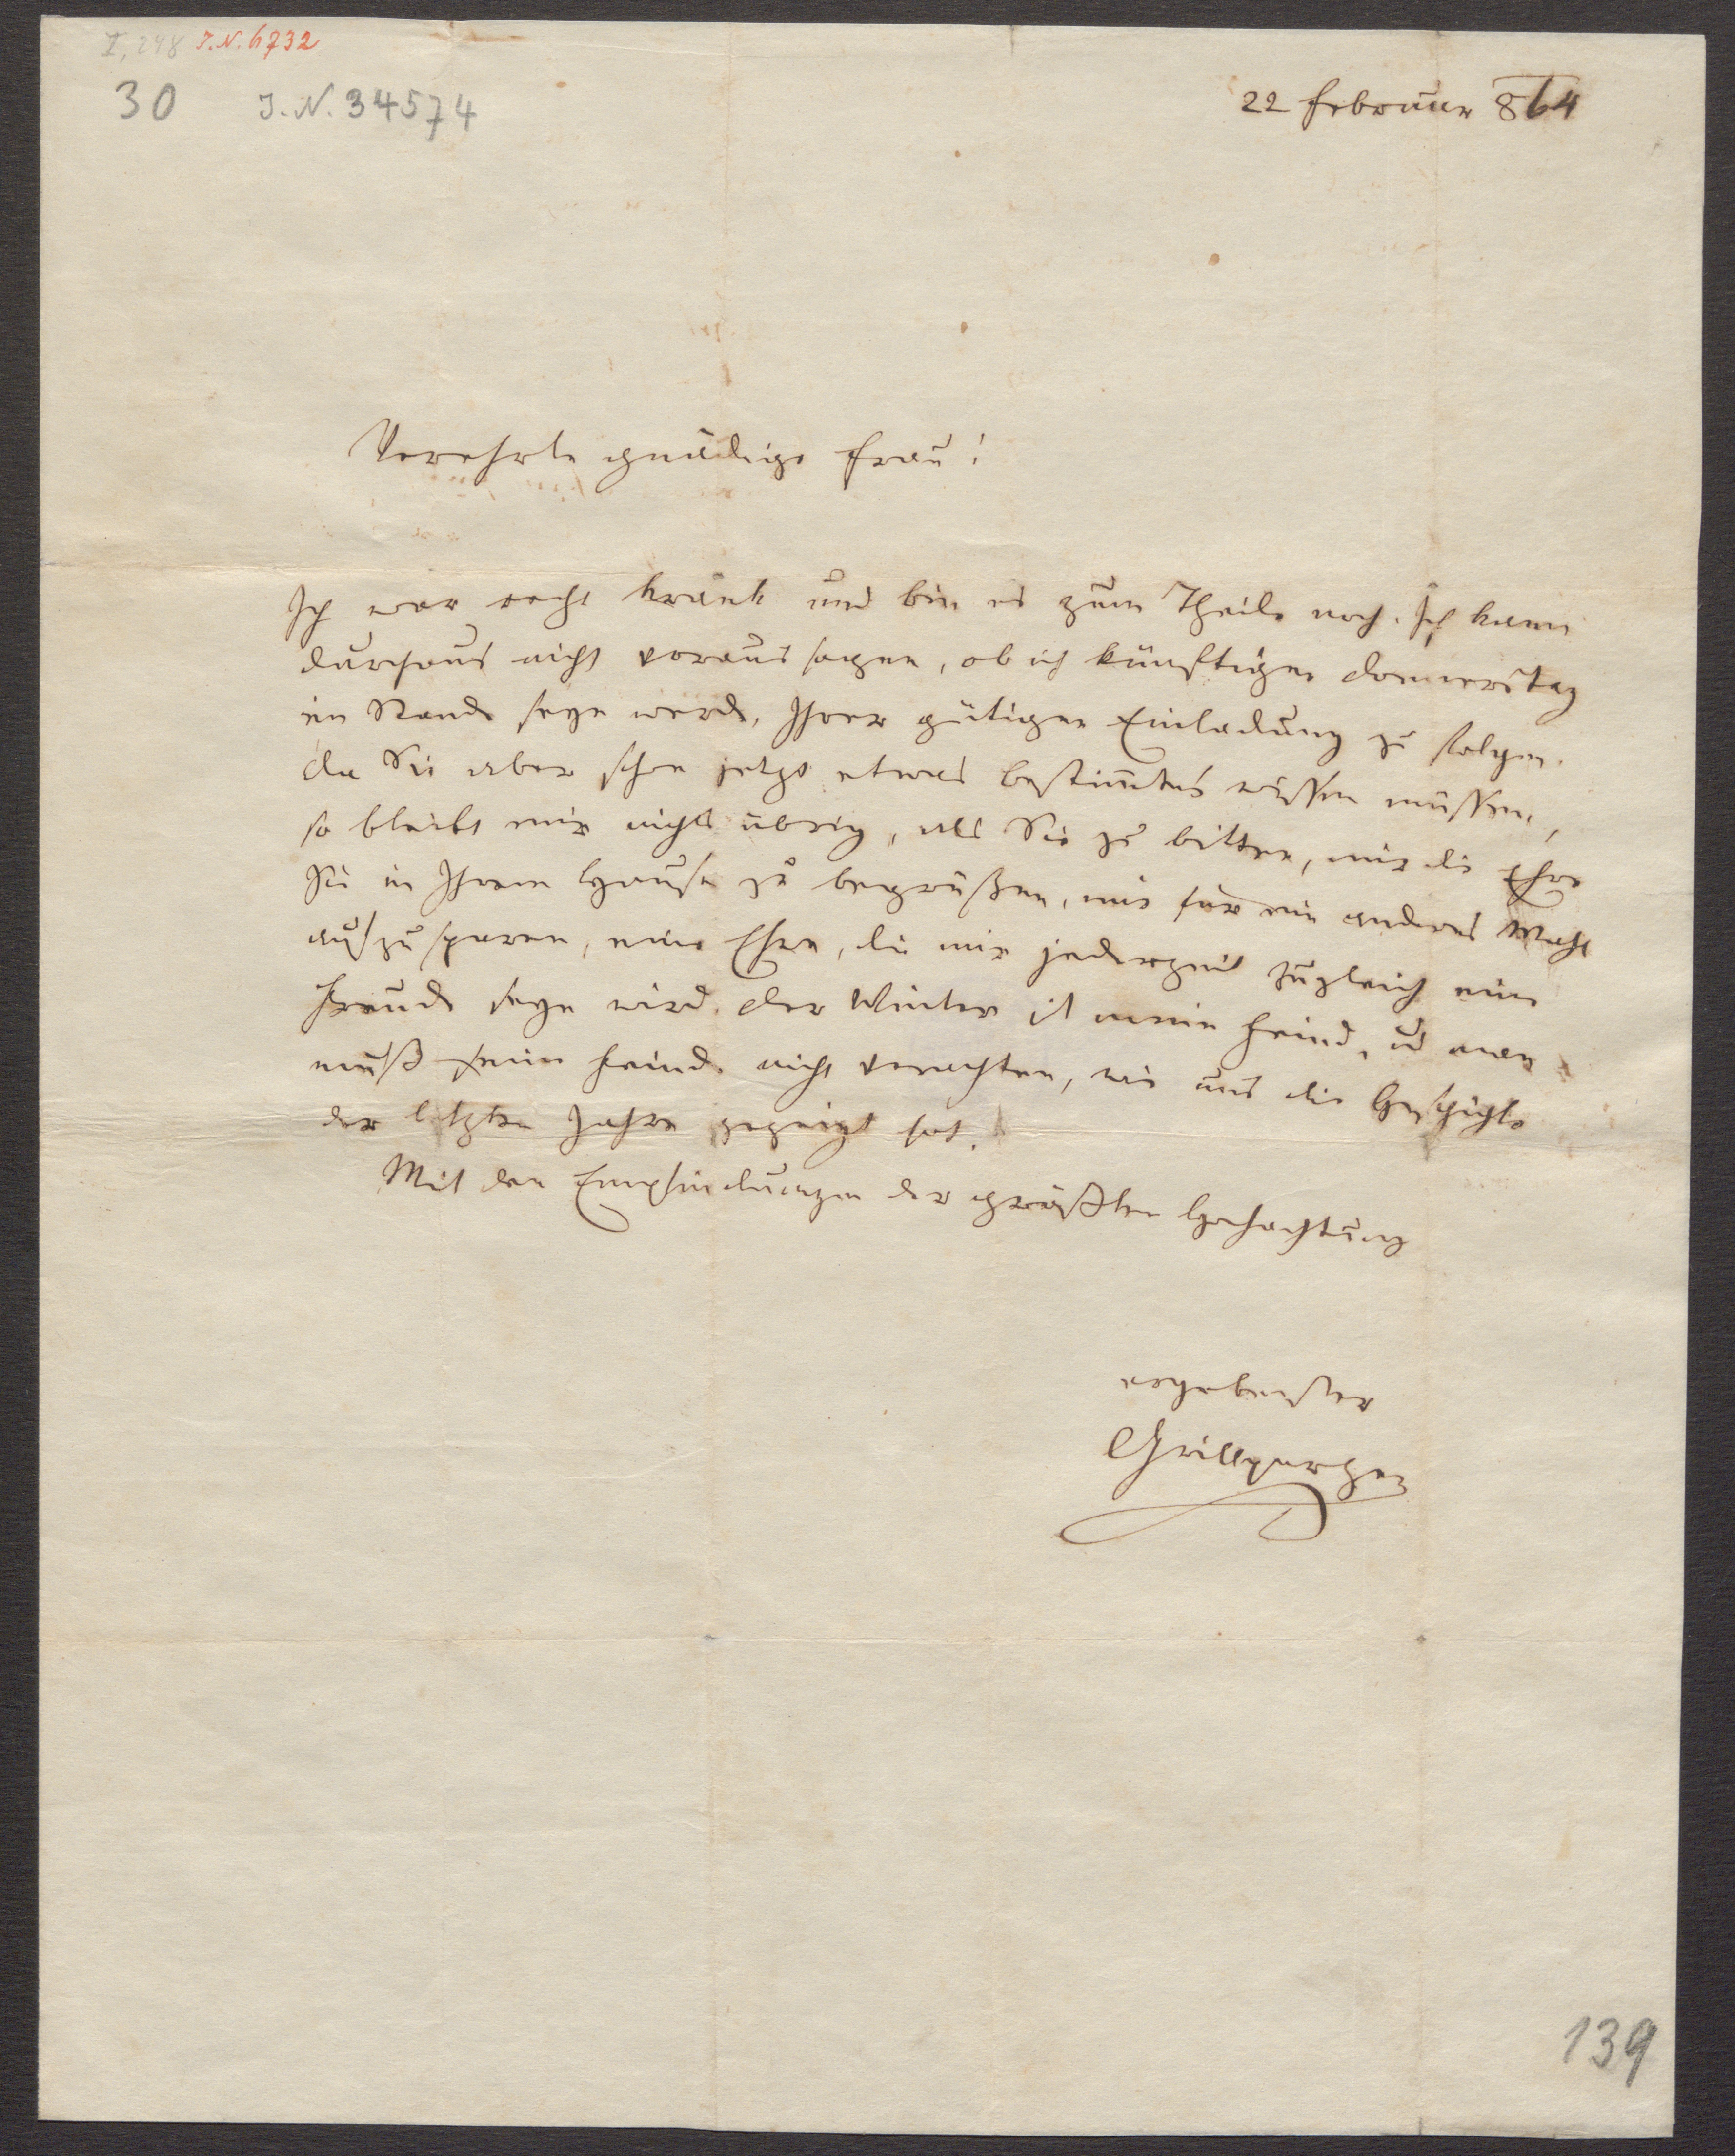 I, 248 I.N. 6732
30 I.N. 34574
22 Februar 864
Verehrte gnädige Frau!
Ich war recht krank und bin es zum Theile noch. Ich kann
durchaus nicht voraus sagen, ob ich künftigen Donnerstag
im Stande seyn werde, Ihrer gütigen Einladung zu folgen.
Da Sie aber schon jetzt etwas bestimmtes wissen müssen,
so bleibt mir nichts übrig, als Sie zu bitten, mir die Ehre
Sie in Ihrem Hause zu begrüßen, mir für ein anderes Mahl
aufzusparen, eine Ehre, die mir jederzeit zugleich eine
Freude seyn wird. Der Winter ist mein Feind, u man
muß seine Feinde nicht verachten, wie uns die Geschichte
der letzten Jahre gezeigt hat.
Mit den Empfindungen der größten Hochachtung
ergebenster
Grillparzer
139